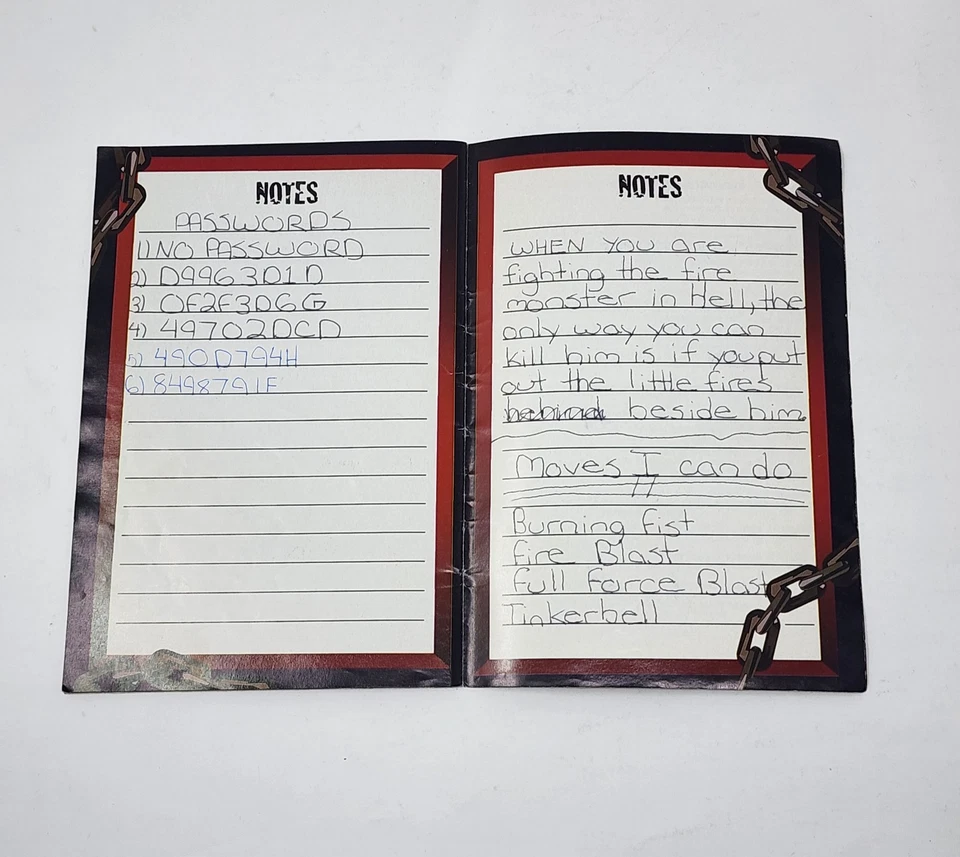 NOTES
PASSWORDS
1) NO PASSWORD
2) D9963D1D
3) OF2F3D6G
4) 49702DCD
5) 490D794H
6) 8498791F
NOTES
WHEN YOU are
fighting the fire
monster in Hell, the
only way you can
kill him is if you put
out the little fires
beside him.
Moves I can do
Burning fist
fire Blast
full force Blast
Tinkerbell